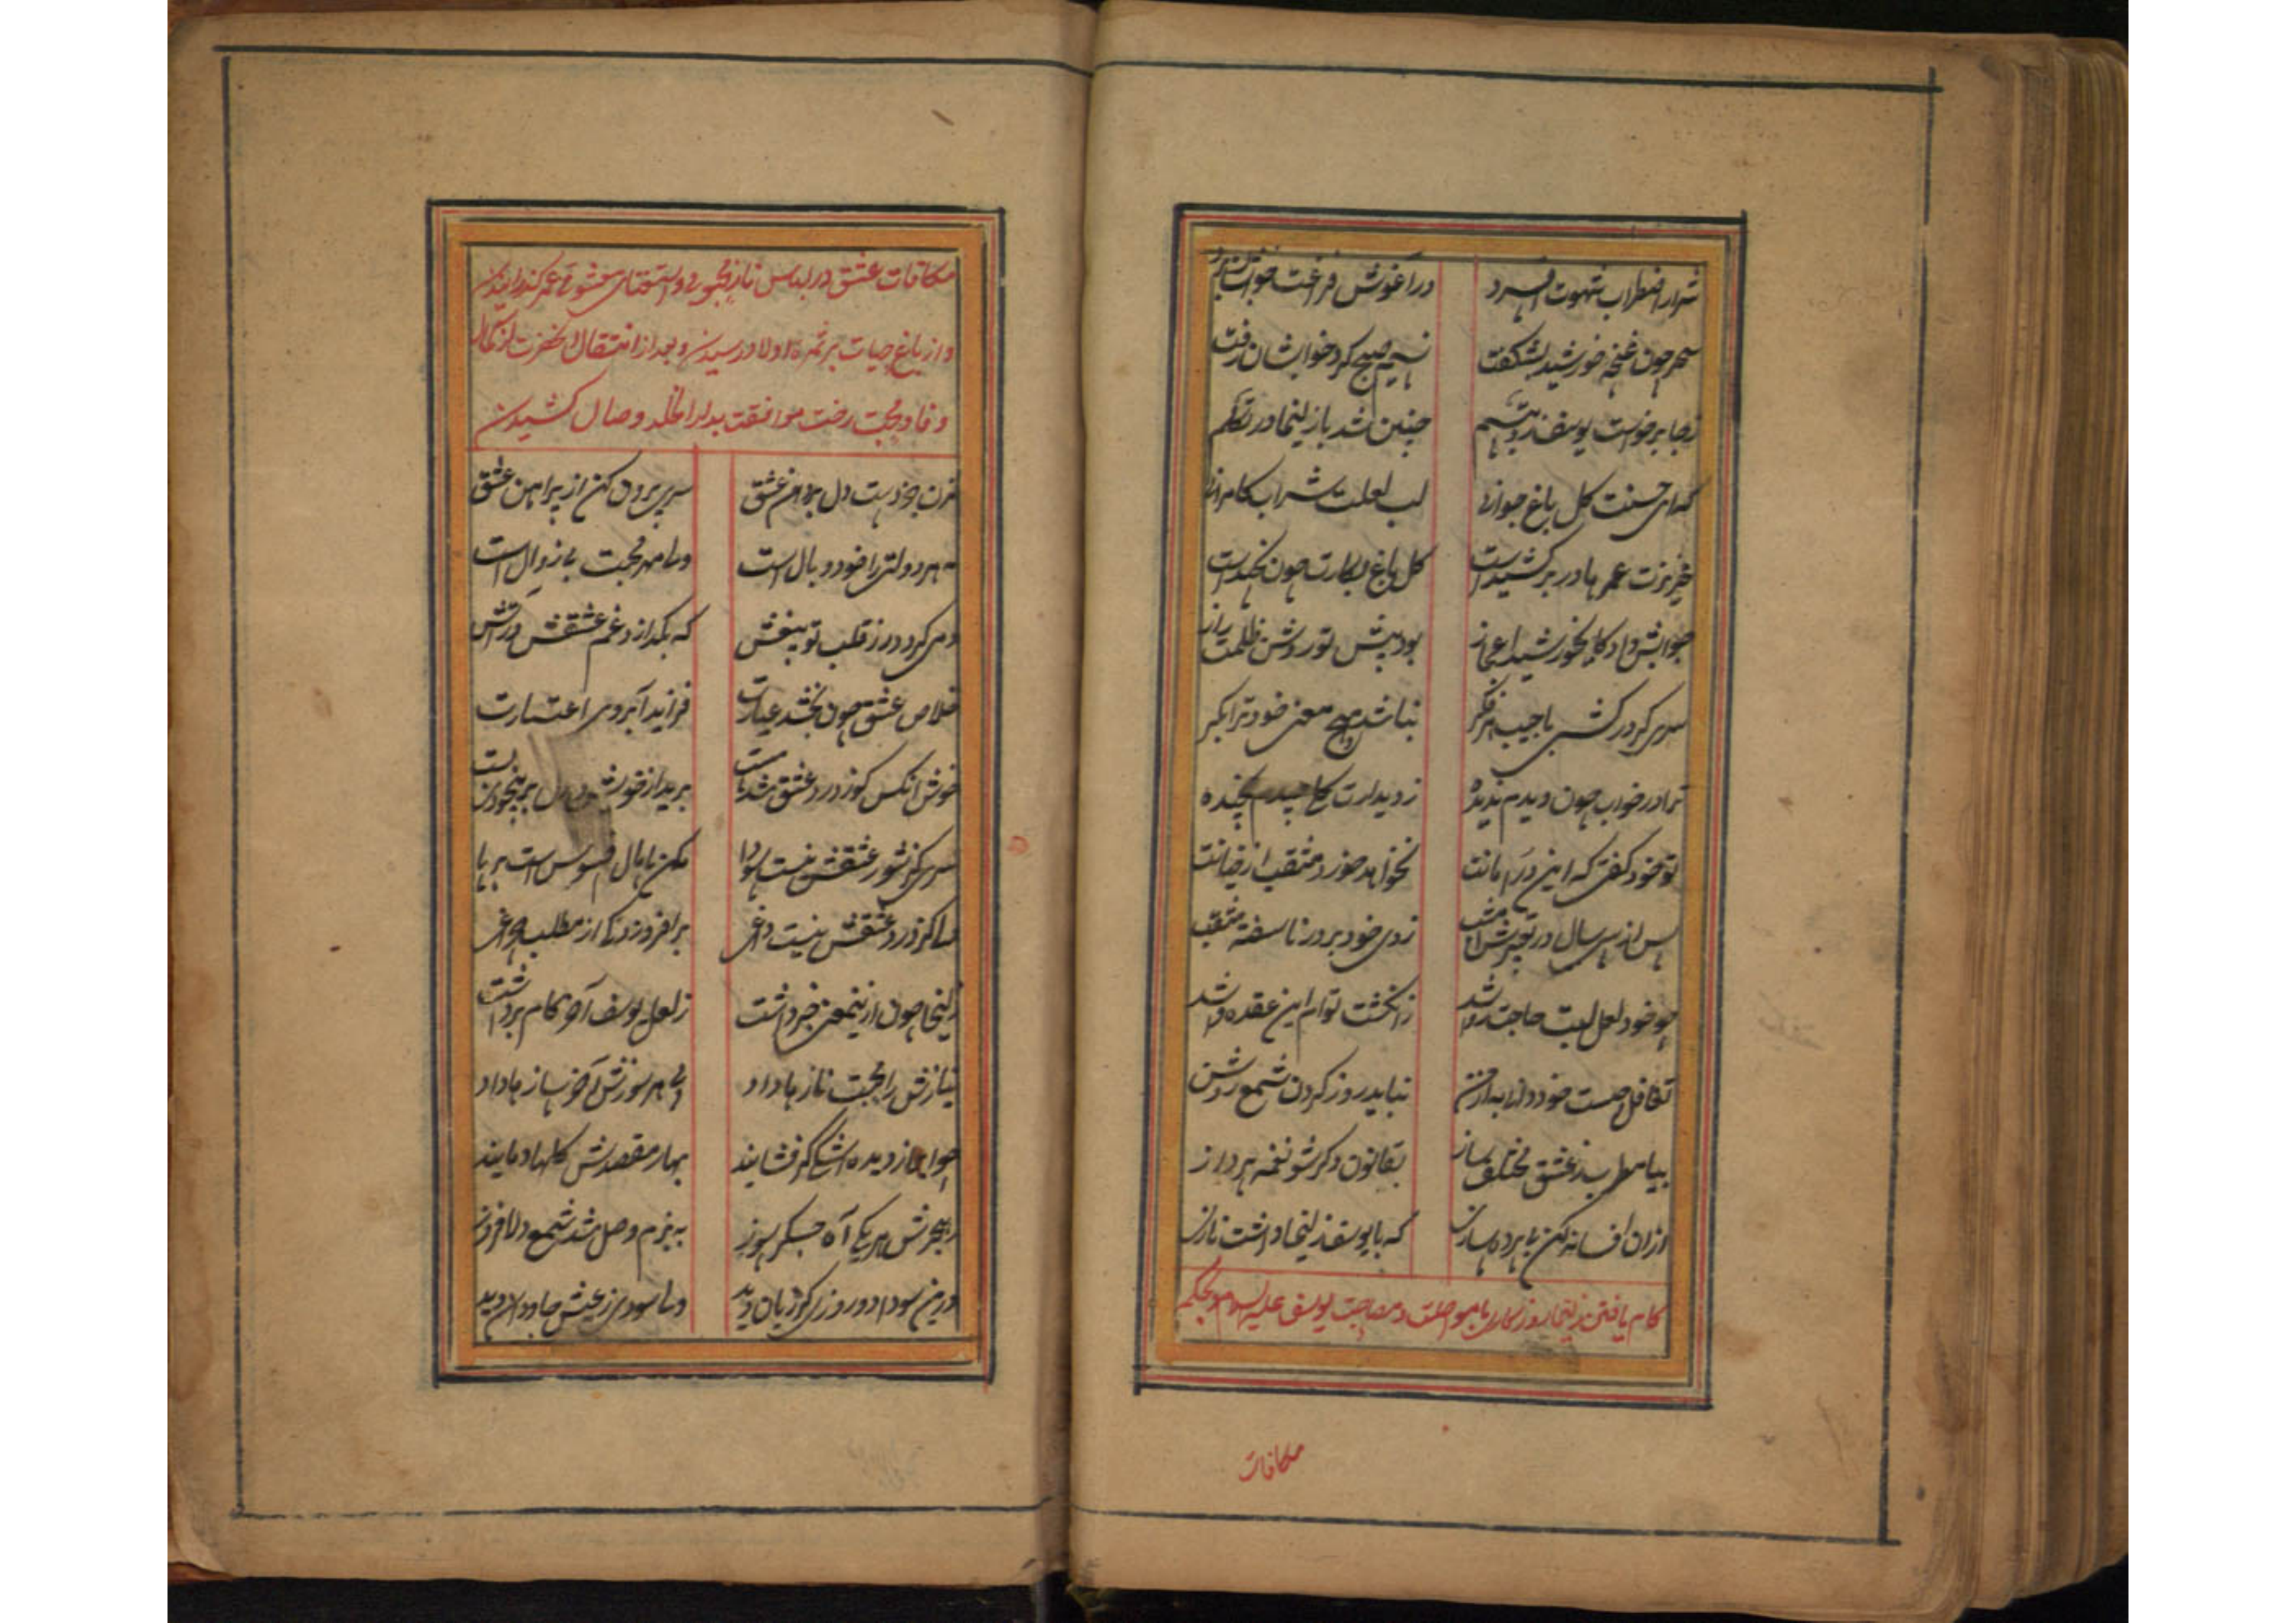 شرار اضطراب شهوت افسرد در آغوش فراغت خوابشان برد
سحر چون غنچه خورشید بشکفت نسیم صبح کرد خوابشان رفت
ز جا برخواست یوسف در تبسم چنین شد با زلیخا در تکلم
که ای حسنت کل باغ جوانی لب لعلت شراب کامرانی
عزیزت عمرها در بر کشیداست کل باغ بکارت چون نچیداست
جوابش داد کای خورشید اعجاز بود پیش تو روشن ظلمت راز
سری کر درکشی با جیب فکر نباشد هیچ معنی خود ترا بکر
ترا در خواب چون دیدم ندیده ز دیدارت کل نچیده
تو خود کفتی که این در امانت نخواهد خورد مثقب از خیانت
پس از سی سال در زدی خود بر در ناسفته مثقب
چو خود لعل لبت حاجت روا شد ز انکشت تو ام این عقده وا شد
تغافل چیست خود دانا به از من نباید روز کردن شمع روشن
بیا مطرب ز عشق مختلف ساز بقانون دکر شو نغمه پرداز
ازان افسانه کن با پرده سازی که با یوسف زلیخا داشت نازی
کام یافتن زلیخا روزکاری با مواصلت و مصاحبت یوسف علیه السلام و بحکم
مکافات
مکافات عشق در لباس ناز محبوبی و استغنای معشوقی عمر کذرانیدن
و از باغ حیات بر ثمره اولاد رسیدن و بعد از انتقال آنحضرت از کمال
وفا و محبت رخت موافقت بدار الخلد وصال کشیدن
بزن دست دل بر دامن عشق سری بیرون کن از پیراهن عشق
هر دولتی را خود وبال است ولی مهر محبت بی زوال است
دمی کردد زر قلب تو بیغش که بکدازد غم عشقش در آتش
خلاص عشق چون بخشد عیارت فزاید آبروی اعتبارت
خوش آنکس کو ز درد عشق شد مست برید از خویش
سری کز شور عشقش نیست سودا مکن پامال افسوس است بر پا
دلی کز درد عشقش نیست داغی بر افروزد کر از مطلب چراغی
زلیخا چون ازین معنی خبر داشت ز لعل یوسف آخر کام برداشت
نیازش را محبت نازها داد پی هر سوزش آخر سازها داد
چو ابر از دیده اشک کر فشاند بهار مقصدش کلها دماند
ز هجرش هر یکی آه جکر سوز به بزم وصل شد شمع دل افروز
درین سودا دو روزی کو زیان دید ولی سودی ز عیش جاودان دید